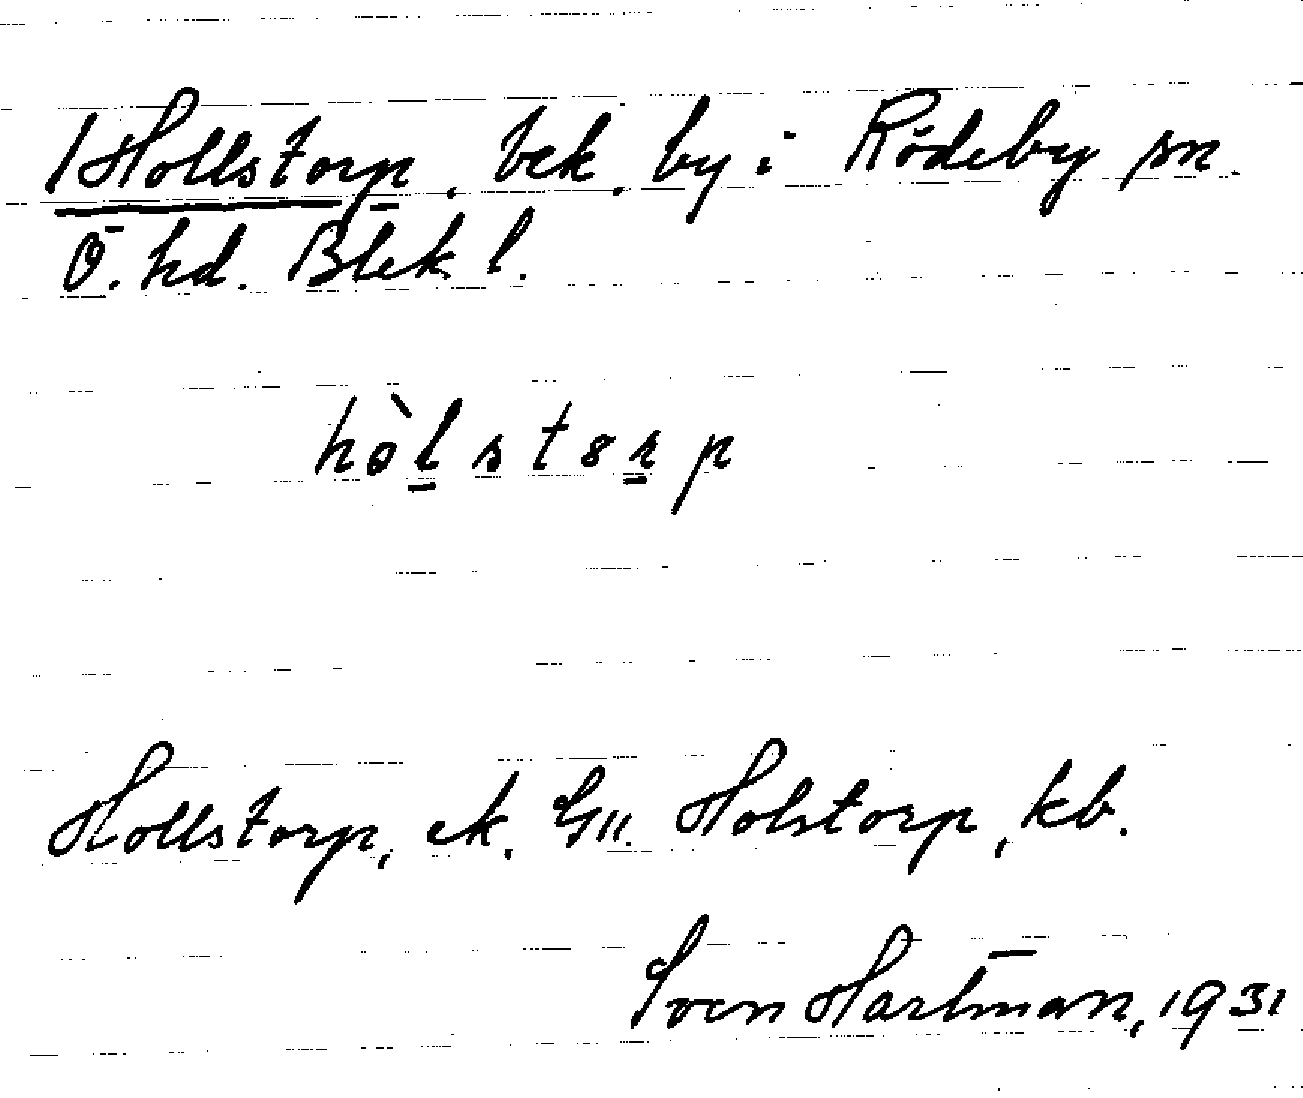 /Hollstorp. bek. by i Rödeby sn.
Ö. hd. Blek l.
hòlstorp
Hollstorp, ek. Holstorp, kb.
Sven Hartman, 1931